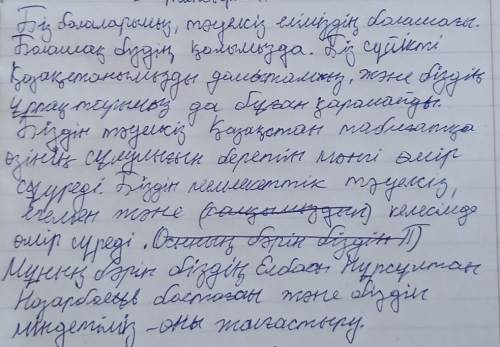 Біз балаларымыз, тәуелсіз еліміздің болашағы.
Болашақ біздің қолымызда. Біз сүйікті
Қазақстанымызды дамытамыз, және біздің
ұрпақтарымыз да бұған қарамайды.
Біздің тәуелсіз Қазақстан табиғатқа
өзінің сұлулығын беретін мәңгі өмір
сүреді. Біздің мемлекеттік тәуелсіз,
егемен және (халқымыздың) келесімде
өмір сүреді. Осының бәрін біздің П)
Мұның бәрін біздің Елбасы Нұрсұлтан
Назарбаев бастаған және біздің
міндетіміз - оны жалғастыру.